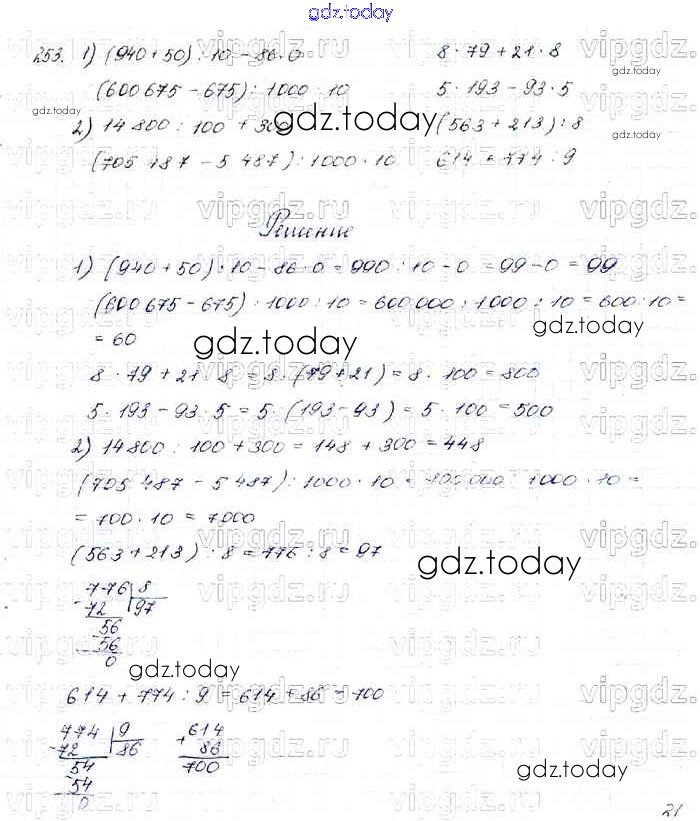 gdz.today
253. 1) (940 + 50) : 10 - 86 · 0    8 · 79 + 21 · 8
(600 675 - 675) : 1000 : 10    5 · 193 - 93 · 5
2) 14 800 : 100 + 300    (563 + 213) : 8
(705 487 - 5 487) : 1000 · 10    614 + 774 : 9
Решение
1) (940 + 50) : 10 - 86 · 0 = 990 : 10 - 0 = 99 - 0 = 99
(600 675 - 675) : 1000 : 10 = 600 000 : 1000 : 10 = 600 : 10 =
= 60
8 · 79 + 21 · 8 = 8 · (79 + 21) = 8 · 100 = 800
5 · 193 - 93 · 5 = 5 · (193 - 93) = 5 · 100 = 500
2) 14 800 : 100 + 300 = 148 + 300 = 448
(705 487 - 5 487) : 1000 · 10 = 700 000 : 1000 · 10 =
= 700 · 10 = 7000
(563 + 213) : 8 = 776 : 8 = 97
776 | 8
- 72 | 97
56
- 56
0
614 + 774 : 9 = 614 + 86 = 700
774 | 9    614
- 72 | 86    + 86
54    700
- 54
0
21
gdz.today
vipgdz.ru